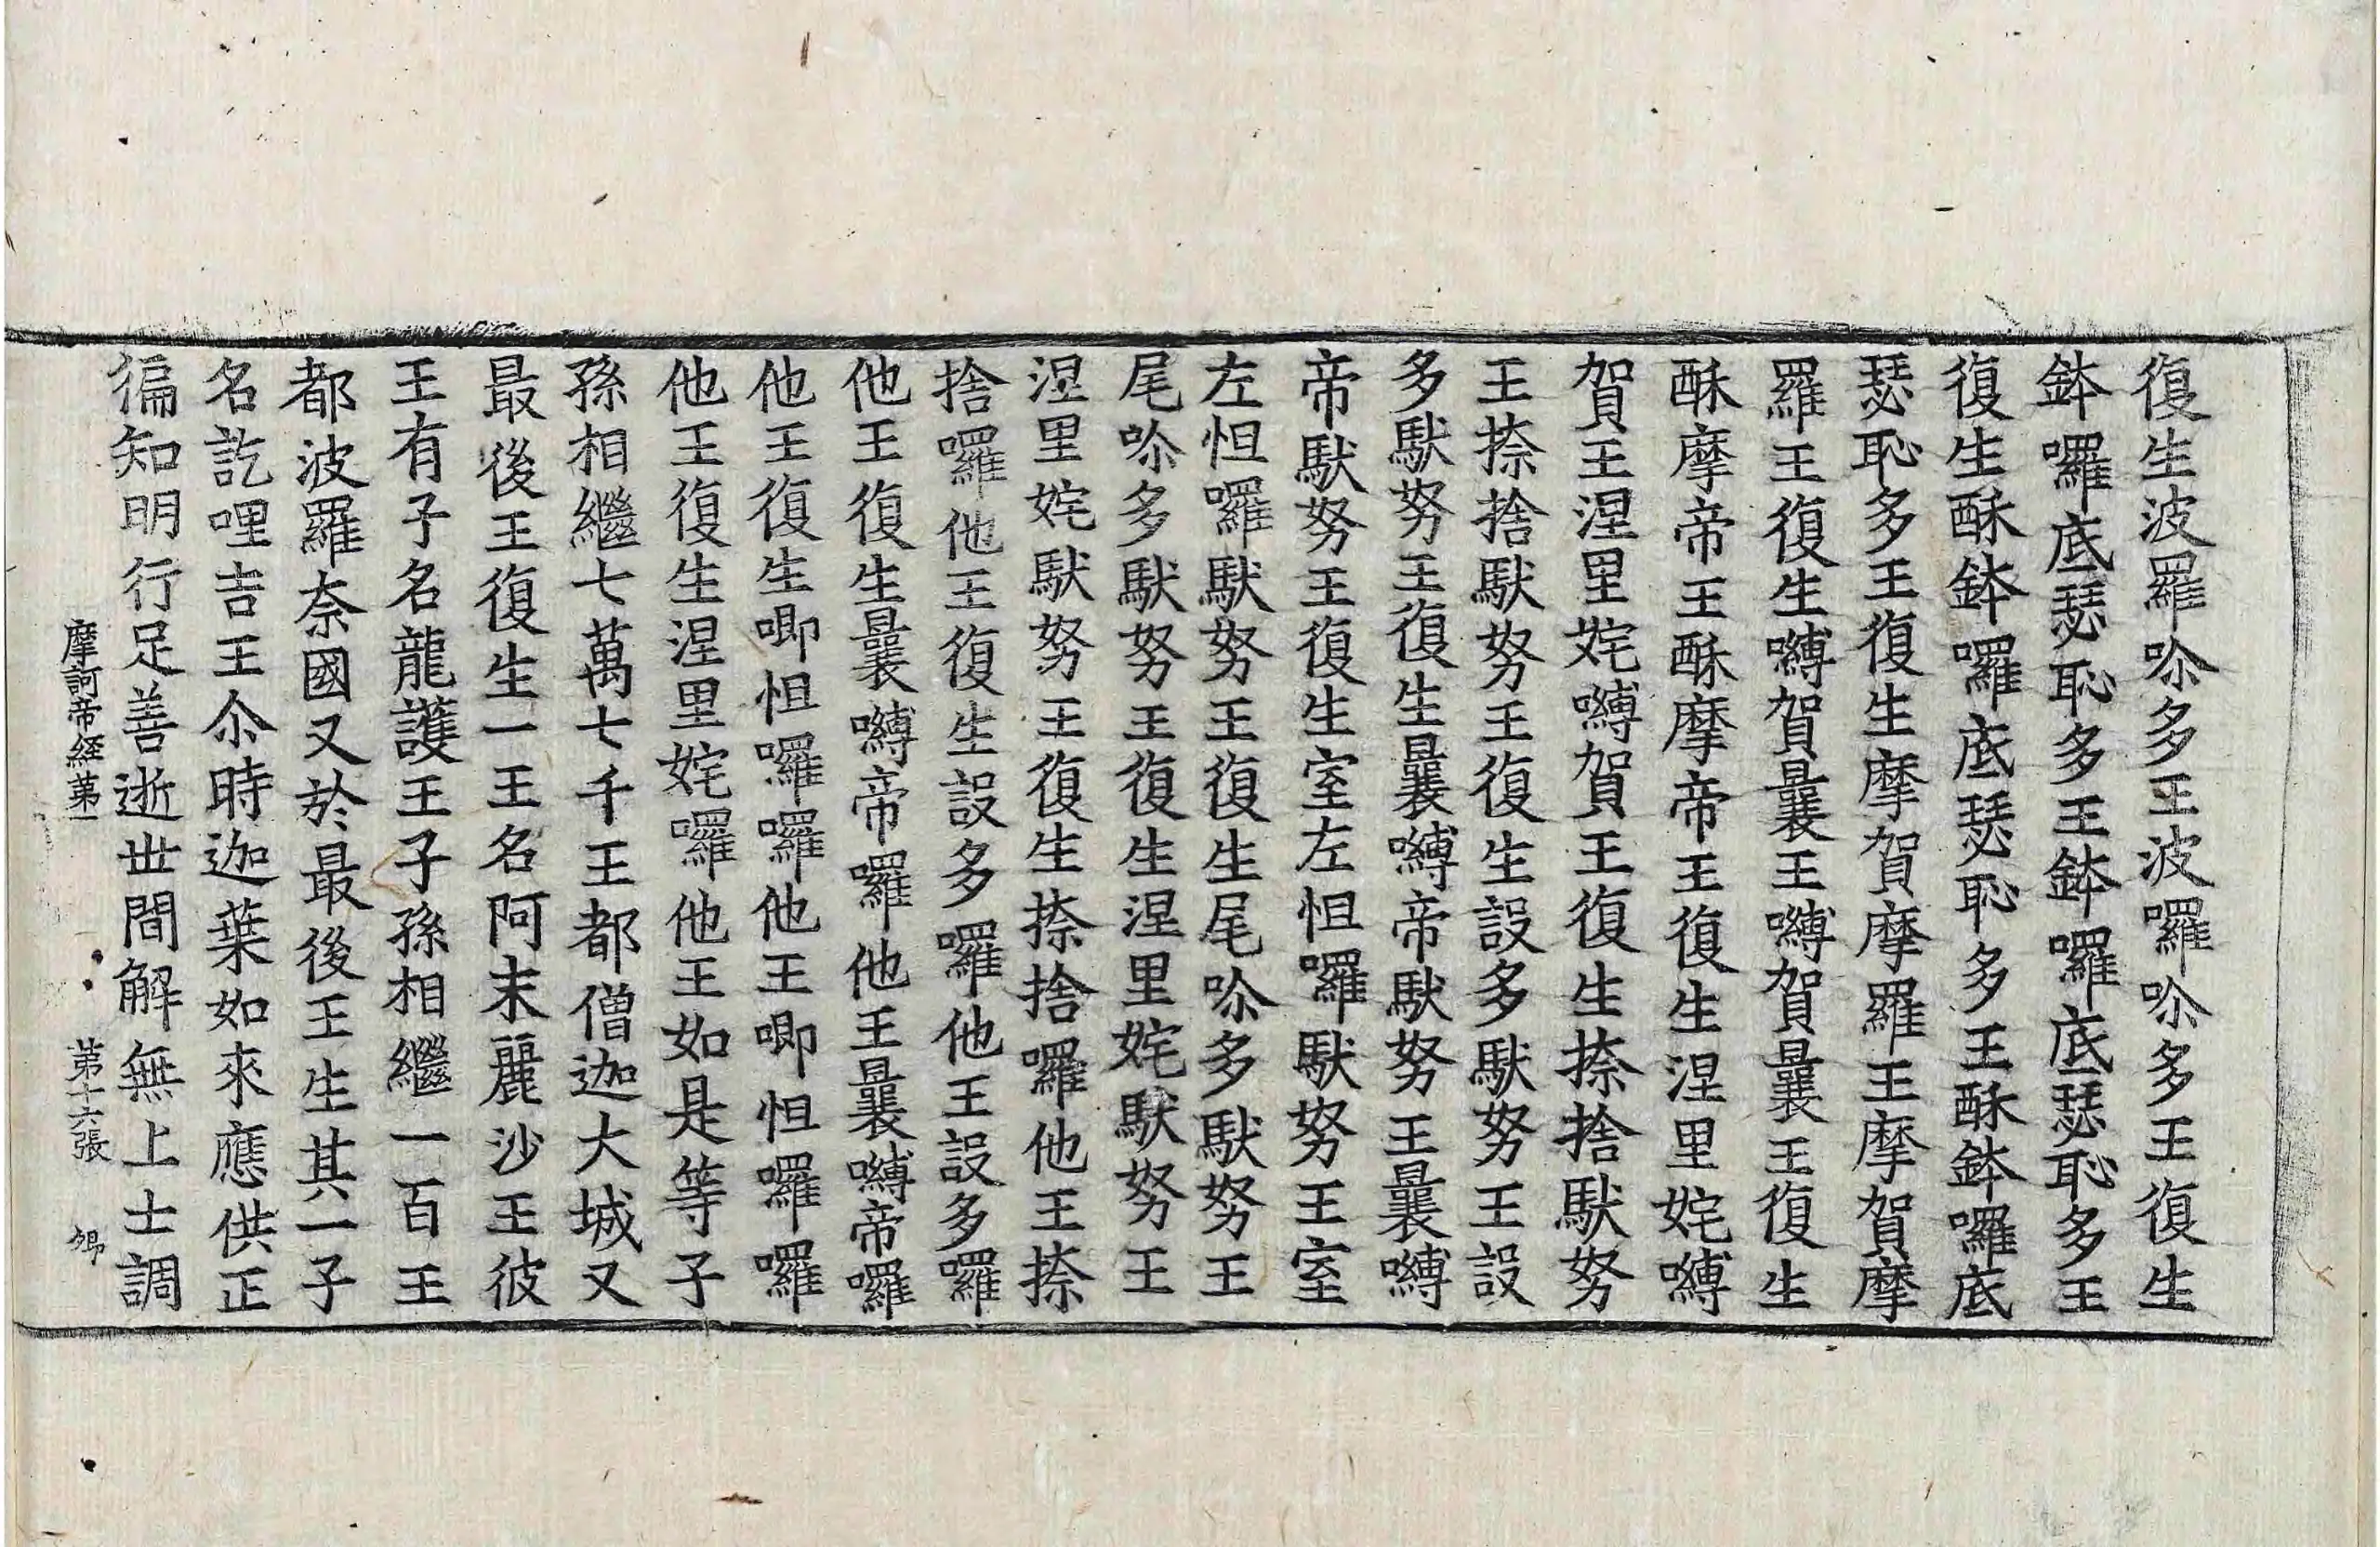 復生波羅㖠多王波囉㖠多王復生
鉢囉底瑟恥多王鉢囉底瑟恥多王
復生酥鉢囉底瑟恥多王酥鉢囉底
瑟恥多王復生摩賀摩羅王摩賀摩
羅王復生嚩賀曩王嚩賀曩王復生
酥摩帝王酥摩帝王復生涅里姹嚩
賀王涅里姹嚩賀王復生捺捨馱努
王捺捨馱努王復生設多馱努王設
多馱努王復生曩嚩帝馱努王曩嚩
帝馱努王復生室左怛囉馱努王室
左怛囉馱努王復生尾㖠多馱努王
尾㖠多馱努王復生涅里姹馱努王
涅里姹馱努王復生捺捨囉他王捺
捨囉他王復生設多囉他王設多囉
他王復生曩嚩帝囉他王曩嚩帝囉
他王復生唧怛囉囉他王唧怛囉囉
他王復生涅里姹囉他王如是等子
孫相繼七萬七千王都僧迦大城又
最後王復生一王名阿末麗沙王彼
王有子名龍護王子孫相繼一百王
都波羅奈國又於最後王生其一子
名訖哩吉王尒時迦葉如來應供正
徧知明行足善逝世間解無上士調
摩訶帝経苐一 第十六張